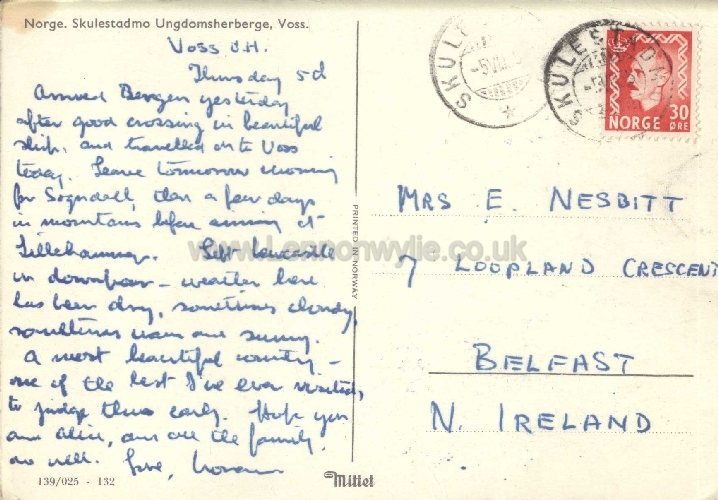 Norge. Skulestadmo Ungdomsherberge, Voss.
Voss J.H.
Thursday 5th
Arrived Bergen yesterday
after good crossing in beautiful
ship, and travelled on to Voss
today. Leave tomorrow morning
for Sogndal, then a few days
in mountains before arriving at
Lillehammer. Left Newcastle
in downpour - weather here
has been dry, sometimes cloudy,
sometimes warm and sunny.
A most beautiful country -
one of the best I've ever visited,
to judge thus early. Hope you
and Alice, and all the family,
are well. Love,
139/025 - 132
Mittet
PRINTED IN NORWAY
SKULESTADMO
NORGE 30 ØRE
MRS E. NESBITT
7 LOOPLAND CRESCENT
BELFAST
N. IRELAND
www.Lennonwylie.co.uk